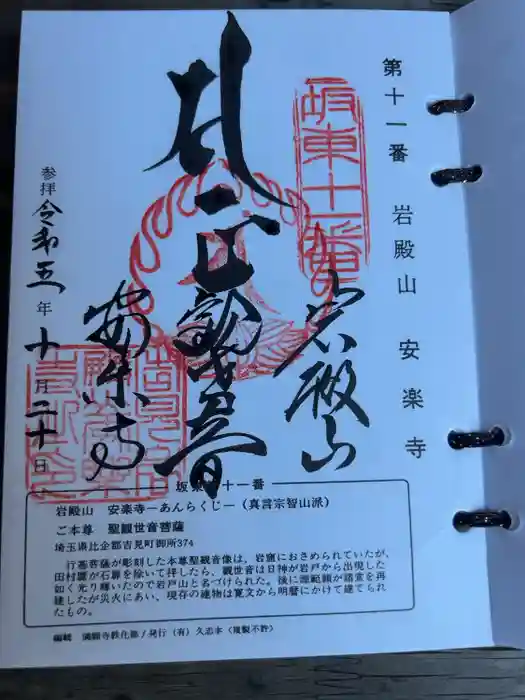 第十一番 岩殿山 安楽寺
坂東十一番
岩殿山
正観音
安楽寺
参拝 令和五年十月二十日
坂東十一番
岩殿山 安楽寺―あんらくじ―(真言宗智山派)
ご本尊 聖観世音菩薩
埼玉県比企郡吉見町御所374
行基菩薩が彫刻した本尊聖観音像は、岩窟におさめられていたが、
田村麿が石扉を除いて拝したら、観世音は日神が岩戸から出現した
如く光り輝いたので岩戸山と名づけられた。後に源範頼が諸堂を再
建したが災火にあい、現存の建物は寛文から明暦にかけて建てられ
たもの。
編輯 満願寺教化部/発行(有)久志本〈複製不許〉